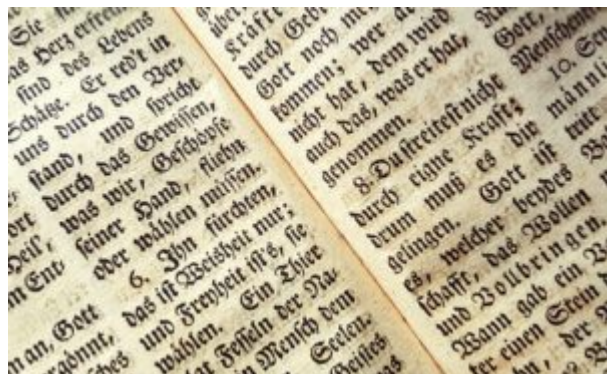 Sie
as Herz erfreue
sind des Lebens
Schätze. Er red't in
uns durch den Ver-
stand, und spricht
durch das Gewissen,
was wir, Geschöpfe
seiner Hand, fliehn
oder wählen müssen.
6. Ihn fürchten,
das ist Weisheit nur;
und Freyheit ist's, sie
wählen. Ein Thier
Fesseln der Na-
Mensch dem
Seelen.
Geistes
ort
Heil,
m Ent-
m an, Gott
ergönnt,
sches
über
Kräfte
durch Geb
Gott noch me
kommen; wer
nicht hat, dem wird
auch das, was er hat,
genommen.
8. Du streitest nicht
durch eigne Kraft;
drum muß es dir
gelingen. Gott ist
es, welcher beydes
schafft, das Wollen
und Vollbringen.
Wann gab ein V
ter einen Stein
der
Gott,
Menschen
10.
männli